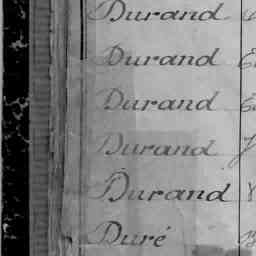 Durand
Durand
Durand
Durand
Durand
Duré